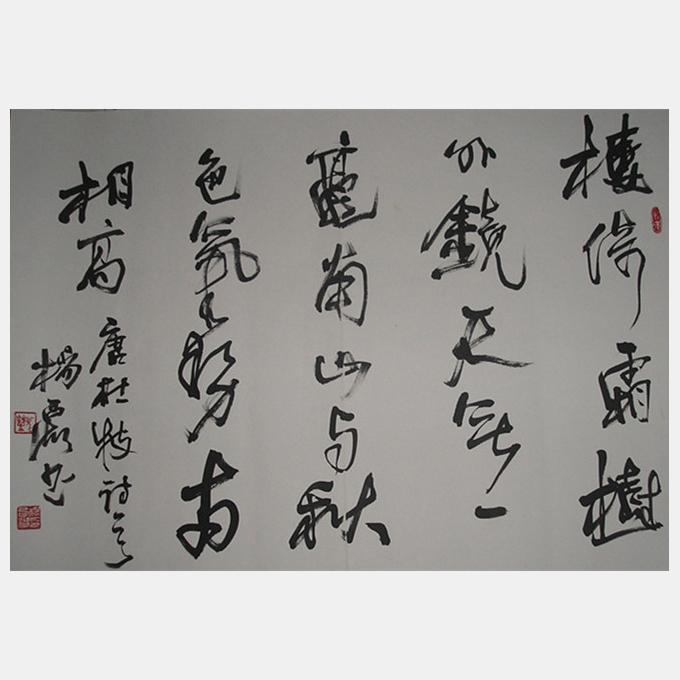 樓倚霜樹
外鏡天無一
毫南山与秋
色氣勢兩
相高
唐杜牧詩
楊 书